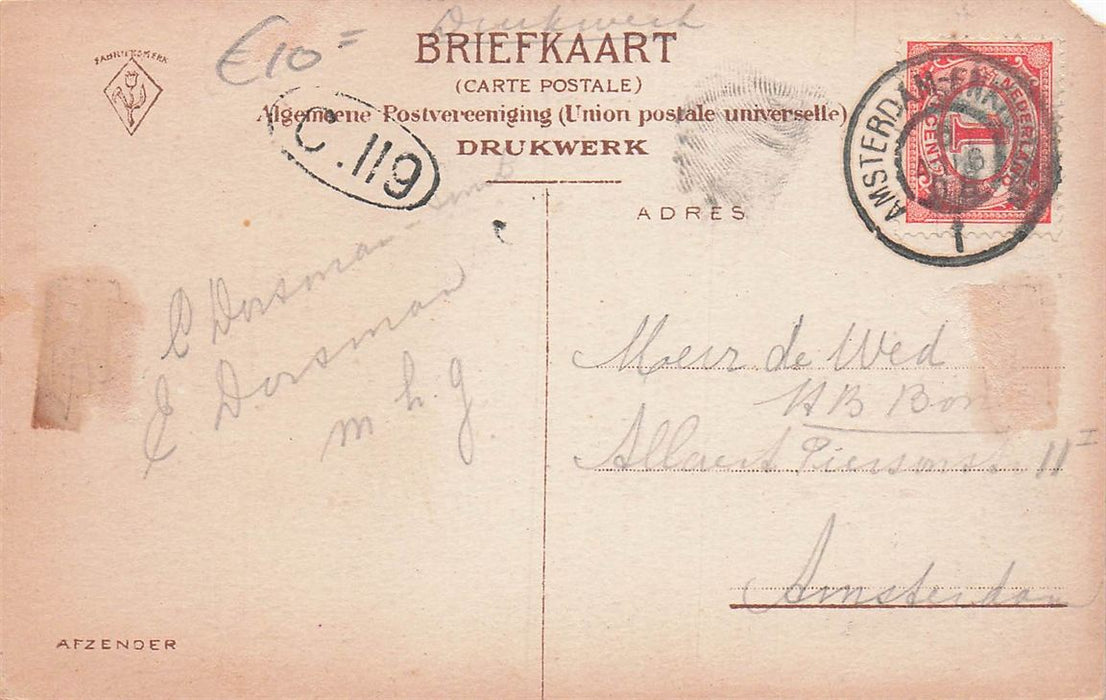 Drukwerk
€10=
FABRIEKSMERK
BRIEFKAART
(CARTE POSTALE)
Algemeene Postvereeniging (Union postale universelle)
DRUKWERK
C.119
AMSTERDAM-ENK
NEDERLAND
1
CENT
ADRES
C Dorsman
E Dorsman
m h. g.
de Wed
HB Bon
Allaert Piersonst 11=
Amsterdam
AFZENDER